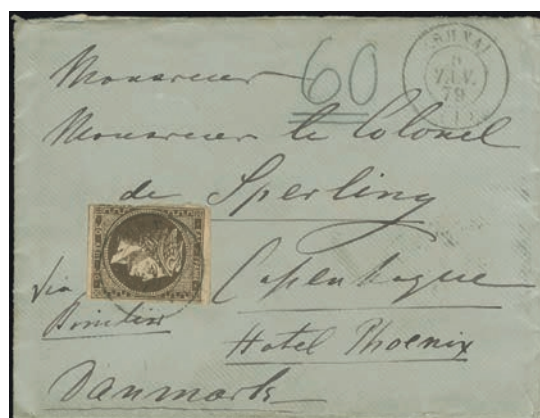 Monsieur
60
Monsieur le Colonel
de Sperling
Copenhague
via
Brindisi
Hotel Phoenix
Danmark
79